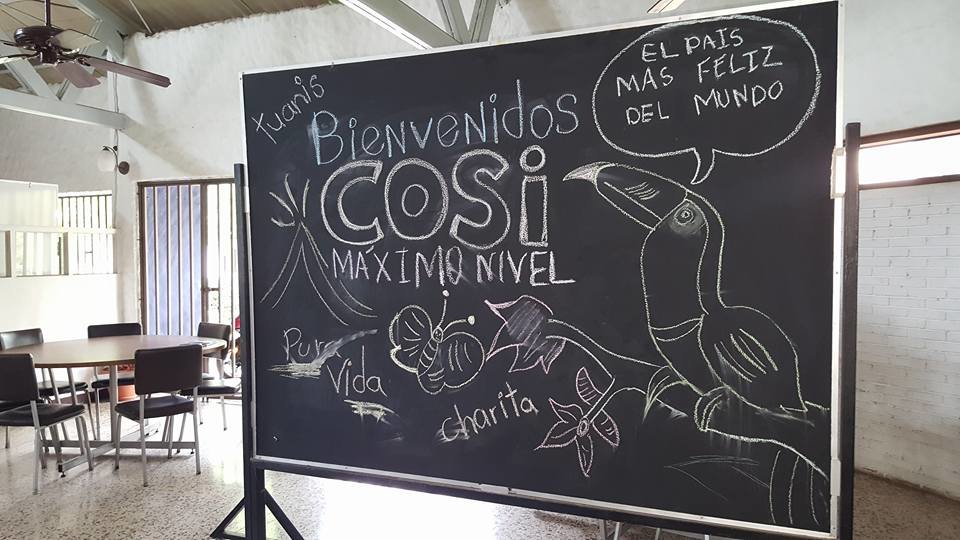 Tuanis
Bienvenidos
COSi
MÁXIMO NIVEL
EL PAIS
MAS FELIZ
DEL MUNDO
Pura
Vida
charita